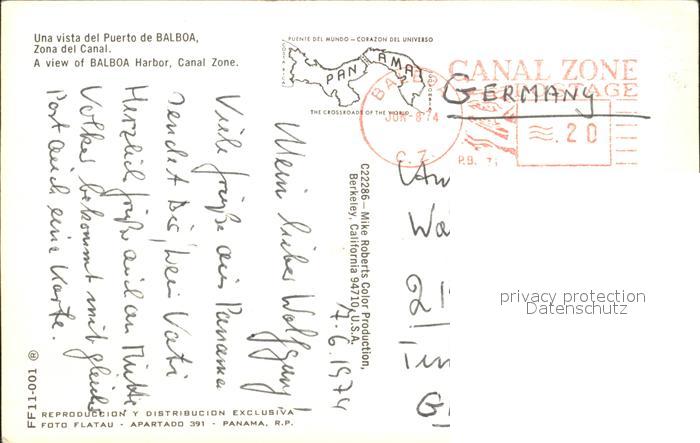 Una vista del Puerto de BALBOA,
Zona del Canal.
A view of BALBOA Harbor, Canal Zone.
PUENTE DEL MUNDO – CORAZON DEL UNIVERSO
PANAMA
THE CROSSROADS OF THE WORLD
CANAL ZONE
POSTAGE
BALBOA
JUN-8'74
C.Z.
P.B.
.20
GERMANY
7.6.1974
Mein lieber Wolfgang!
Viele Grüße aus Panama
sendet Dir, Dein Vati
Herzliche Grüße auch an Mutti
Volker bekommt mit gleicher
Post auch eine Karte.
C22286 – Mike Roberts Color Production,
Berkeley, California 94710, U.S.A.
An
Wo
21
G
privacy protection
Datenschutz
FF11-001 ®
REPRODUCCION Y DISTRIBUCION EXCLUSIVA
FOTO FLATAU - APARTADO 391 - PANAMA, R.P.